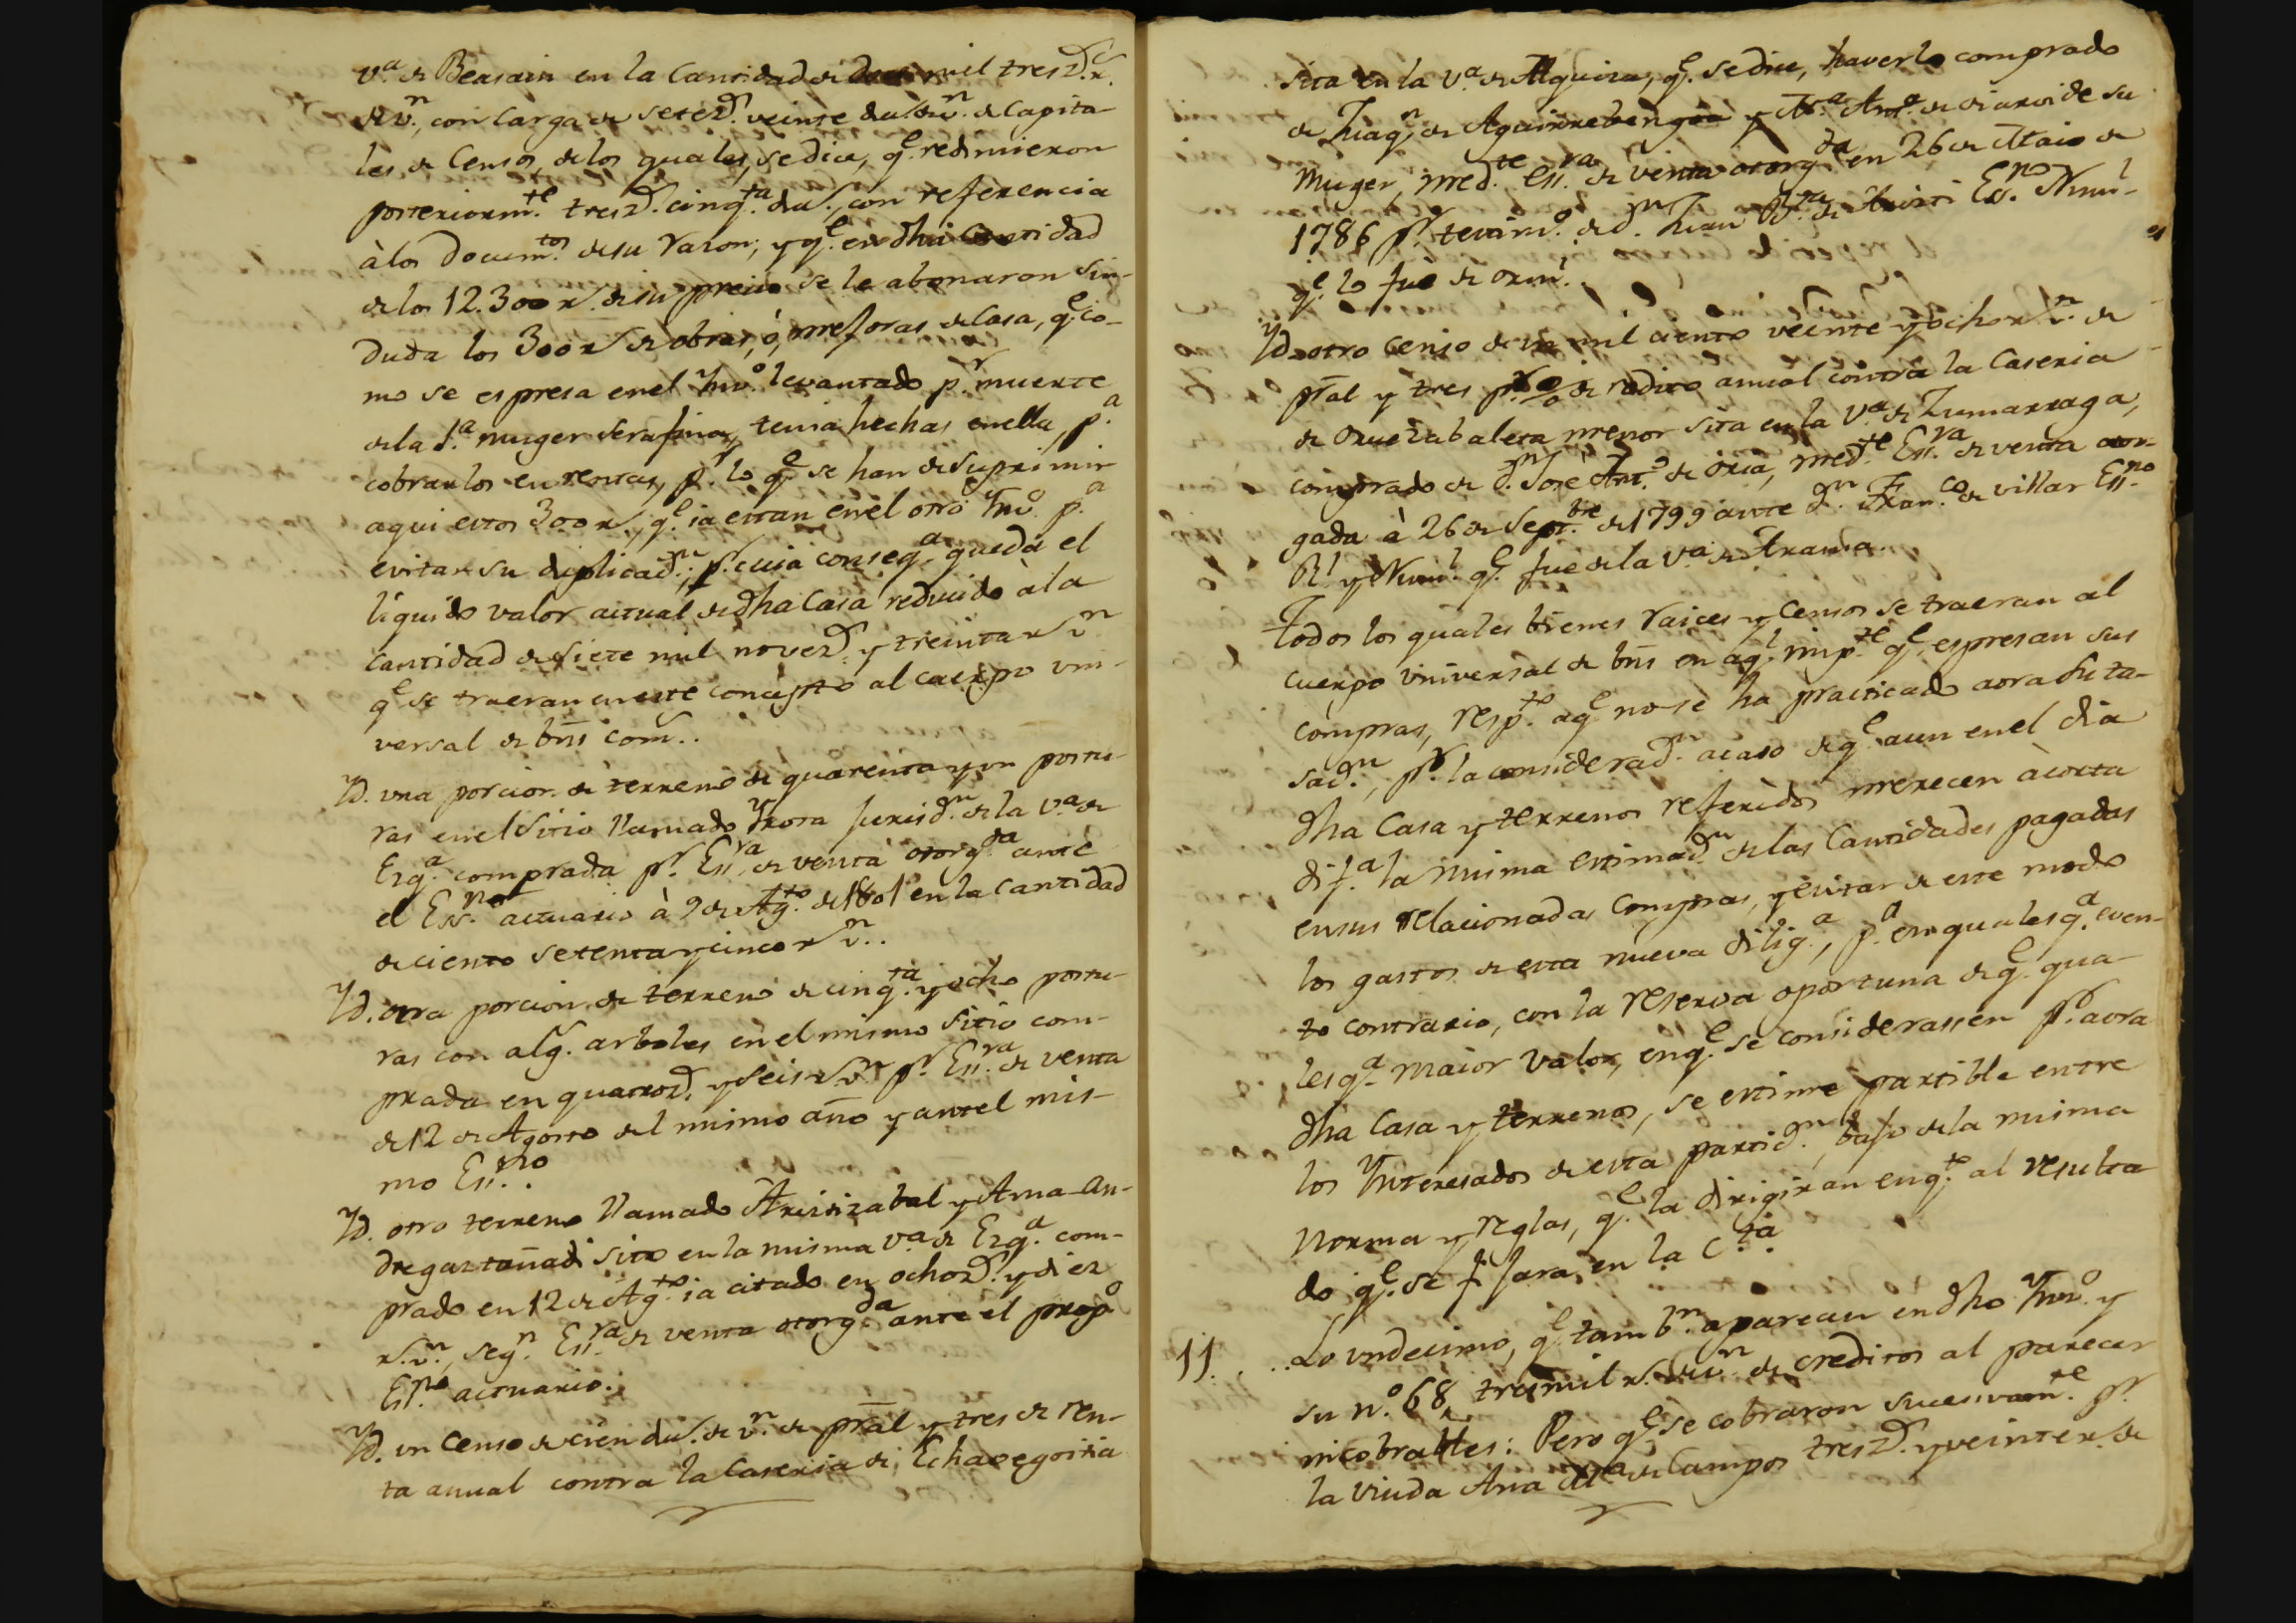 v.ª de Beasain en la Cantidad de doce mil tresz.s r.s
de v.n, con carga de setez.s veinte du.s de v.n de Capita-
les de Censos, de los quales, se dice, q.e redimieron
posteriorm.te tresz.s cinq.ta du.s, con referencia
à los Docum.tos de su razon; y q.e en dha Cantidad
de los 12.300 r.s de su precio se le abonaron sin-
duda los 300 r.s de obras, ò, mejoras de Casa, q.e co-
mo se espresa en el Ynv.o levantado p.r muerte
de la 1.ª muger Serafina, tenia hechas en ella, p.ª
cobrarlos en rentas, p.r lo q.e se han de suprimir
aqui estos 300 r.s, q.e ia estan en el otro Ynv.o p.ª
evitar su duplicac.n; p.r cuia conseq.ª queda el
liquido valor actual de dha Casa reducido à la
Cantidad de siete mil novez.s y treinta r.s v.n
q.e se traeran en este concepto al cuerpo vni-
versal de bns com.s.
Yd. vna porcion de terreno de quarenta y un postu-
ras en el sitio llamado Yrora jurisd.n de la v.ª de
Ezq.ª comprada p.r Ess.ra de venta otorg.da ante
el Ess.no actuario à 9 de Ag.to de 1801 en la Cantidad
de ciento setenta y cinco r.s v.n.
Yd. otra porcion de terreno de cinq.ta y ocho postu-
ras con alg.s arboles en el mismo sitio com-
prada en quatroz.s y seis r.s v.n p.r Ess.ra de venta
de 12 de Agosto del mismo año y ante el mis-
mo Ess.no
Yd. otro terreno llamado Aristizabal y Ama-an-
dregaztañadi sito en la misma v.ª de Ezq.ª com-
prado en 12 de Ag.to ia citado en ochoz.s y diez
r.s v.n, seg.n Ess.ra de venta otorg.da ante el prop.o
Ess.no actuario.
Yd. un Censo de cien du.s de v.n de pral y tres de ren-
ta anual contra la Caseria de Echavegoitia
sita en la v.ª de Alquiza, q.e se dice, haverlo comprado
de Juaq.n de Aguirrebengoa y M.ª Ant.ª de su
Muger, med.te Ess.ra de venta otorg.da en 26 de Maio de
1786 p.r testim.o de d.n Juan B.ta de Ess.no Num.l
q.e lo fue de orm.l.
Yd. otro Censo de mil ciento veinte y ocho r.s v.n de
pral y tres p.r % de redito anual contra la Caseria
de Oruezabaleta menor sita en la v.ª de Zumarraga,
comprado de d.n Josè Ant.o de Oria, med.te Ess.ra de venta otor-
gada à 26 de Sept.bre de 1799 ante d.n Fran.co de Villar Ess.no
R.l y Num.l q.e fue de la v.ª de Arama.
Todos los quales bienes raices y Censos se traeran al
cuerpo vniversal de bns en aq.l imp.te q.e espresan sus
compras, resp.to aq.e no se ha practicado aora su ta-
sac.n, p.r la considerac.n acaso de q.e aun en el dia
dha Casa y terrenos referidos merecen à corta
dif.ª la misma estimac.n de las Cantidades pagadas
en sus relacionadas compras, y evitar de este modo
los gastos de esta nueva dilig.ª, p.ª en qualesq.ª even-
to contrario, con la reserva oportuna de q.e qua-
lesq.ª maior valor, en q.e se considerassen p.r aora
dha Casa y terrenos, se estime partible entre
los Ynteresados de esta partic.n, bajo de la misma
norma y reglas, q.e la dirigiràn en q.to al resulta-
do q.e se fijara, en la C.ta
11. . . Lo vndecimo, q.e tamb.n aparecen en dho Ynv.o y
su n.o 68, tres mil r.s de v.n de creditos al parecer
incobrables: Pero q.e se cobraron sucesivam.te p.r
la viuda Ana M.ª de Campos tresz.s y veinte r.s de